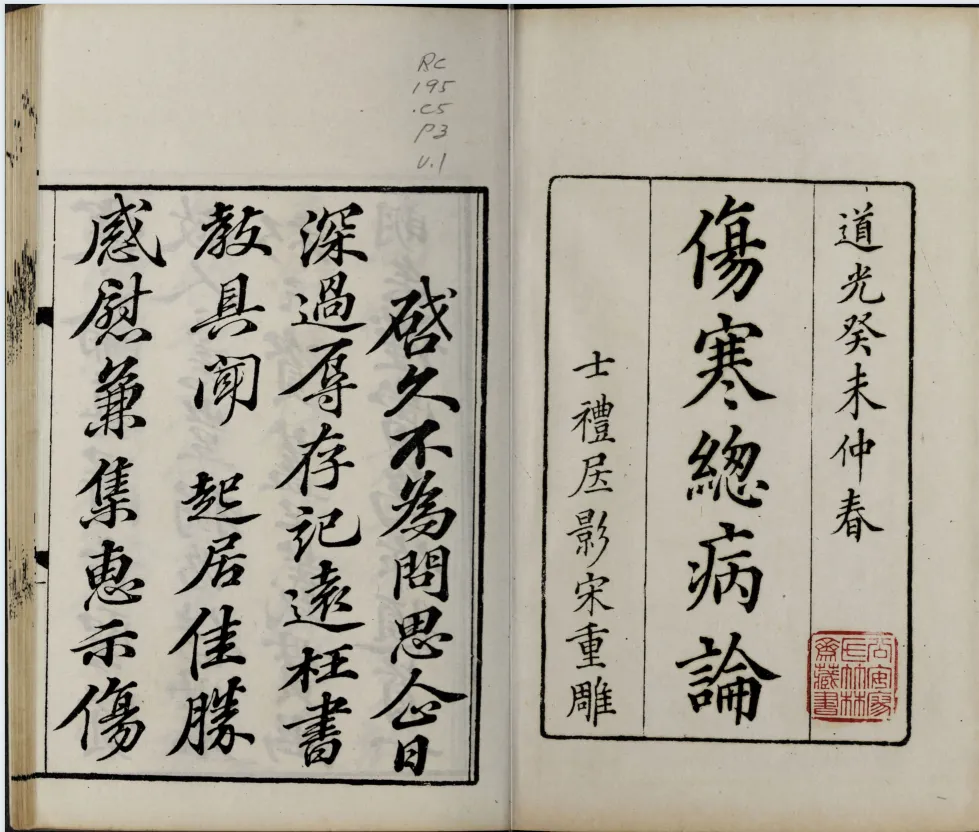 道光癸未仲春
傷寒緫病論
士禮居影宋重雕
氏竹林
藏書
RC
195
.C5
P3
V.1
啓久不為問思企日
深過辱存記遠枉書
教具聞 起居佳勝
感慰兼集惠示傷